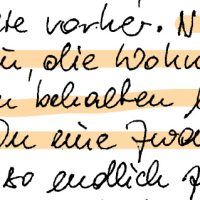 vorher. N
die Wohn
behalten
eine Zwa
so endlich